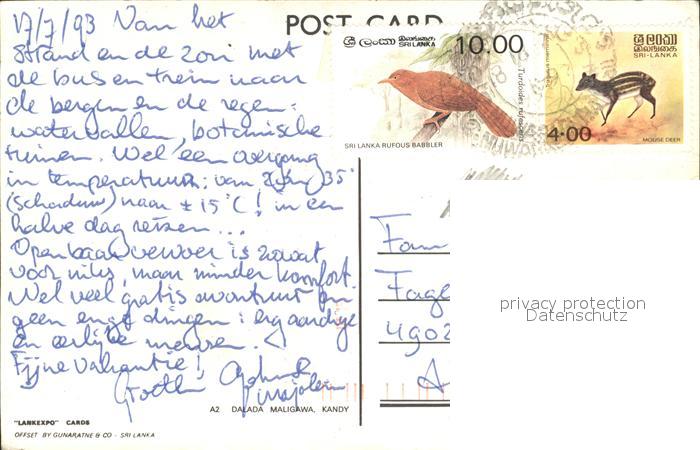 17/7/93 Van het
strand en de zon met
de bus en trein naar
de bergen en de regen:
watervallen, botanische
tuinen. Wel een overgang
in temperatuur: van 35°
(schaduw) naar ± 15°C! in een
halve dag reizen...
Openbaar vervoer is zowat
voor niks, maar minder komfort.
Wel veel gratis avontuur en
geen enge dingen: erg aardige
en eerlijke mensen.
Fijne vakantie!
Groeten
Marjolein
POST CARD
ශ්‍රී ලංකා இலங்கை
SRI LANKA
10.00
Turdoides rufescens
SRI LANKA RUFOUS BABBLER
ශ්‍රී ලංකා
இலங்கை
SRI-LANKA
4.00
MOUSE DEER
Fam
4902
A
privacy protection
Datenschutz
A2 DALADA MALIGAWA, KANDY
"LANKEXPO" CARDS
OFFSET BY GUNARATNE & CO - SRI LANKA